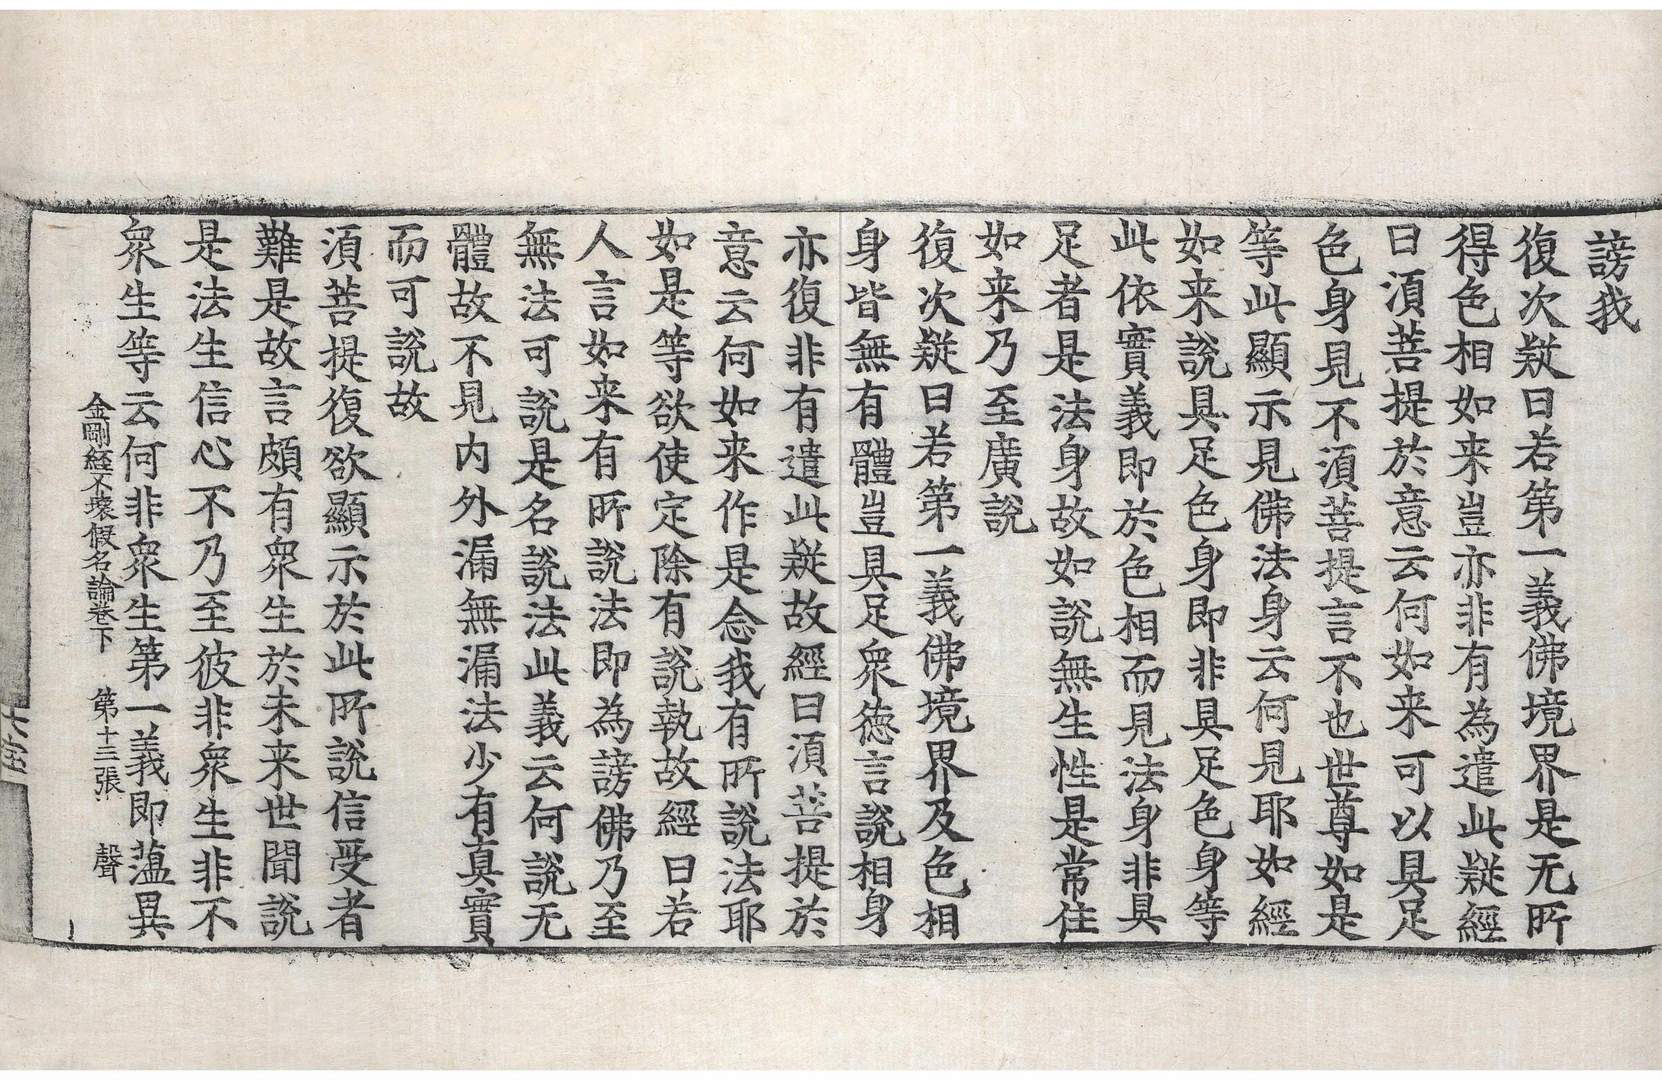 謗我
復次疑曰若第一義佛境界是无所
得色相如来豈亦非有為遣此疑經
曰湏菩提於意云何如来可以具足
色身見不湏菩提言不也世尊如是
等此顯示見佛法身云何見耶如經
如来說具足色身即非具足色身等
此依實義即於色相而見法身非具
足者是法身故如說無生性是常住
如来乃至廣說
復次疑曰若第一義佛境界及色相
身皆無有體豈具足衆德言說相身
亦復非有遣此疑故經曰湏菩提於
意云何如来作是念我有所說法耶
如是等欲使定除有說執故經曰若
人言如来有所說法即為謗佛乃至
無法可說是名說法此義云何說无
體故不見内外漏無漏法少有真實
而可說故
湏菩提復欲顯示於此所說信受者
難是故言頗有衆生於未来世聞說
是法生信心不乃至彼非衆生非不
衆生等云何非衆生第一義即薀異
金剛經不壞假名論卷下 第十三張 聲